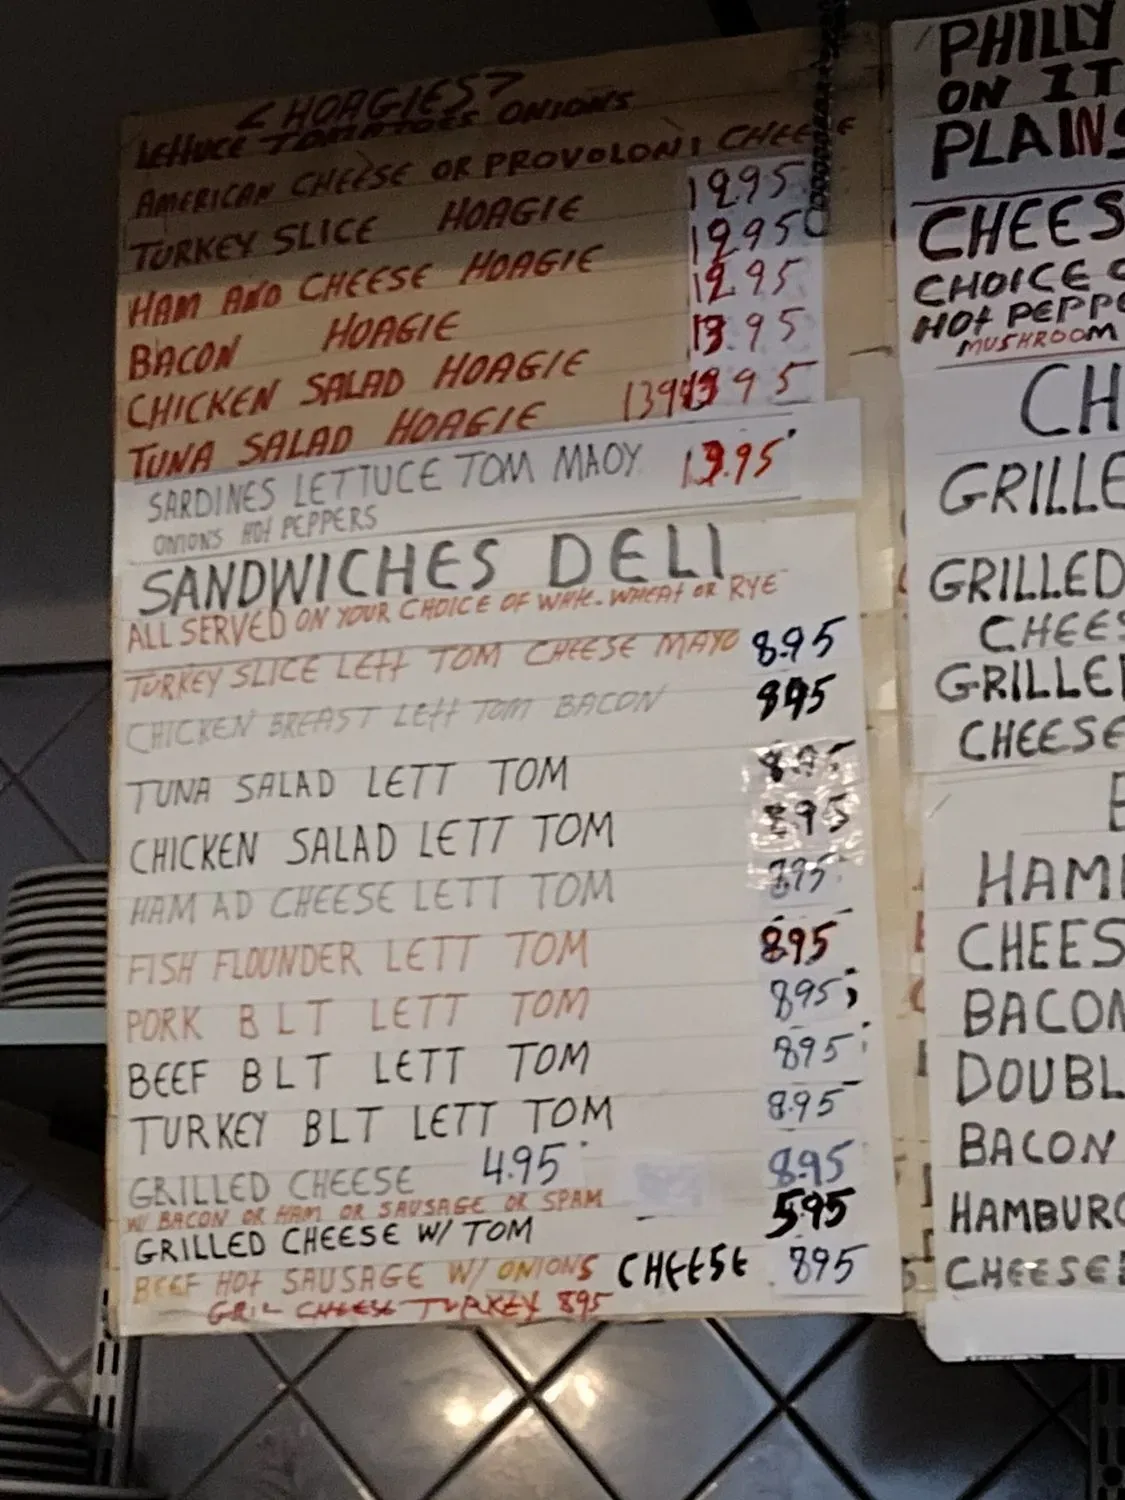 < HOAGIES >
LETTUCE TOMATOES ONIONS
AMERICAN CHEESE OR PROVOLONI CHEESE
TURKEY SLICE HOAGIE 1295
HAM AND CHEESE HOAGIE 1295
BACON HOAGIE 1295
CHICKEN SALAD HOAGIE 13.95
TUNA SALAD HOAGIE 1395
SARDINES LETTUCE TOM MAOY 13.95
ONIONS HOT PEPPERS
SANDWICHES DELI
ALL SERVED ON YOUR CHOICE OF WHIE-WHEAT OR RYE
TURKEY SLICE LETT TOM CHEESE MAYO 8.95
CHICKEN BREAST LETT TOM BACON 895
TUNA SALAD LETT TOM 8.95
CHICKEN SALAD LETT TOM 895
HAM AD CHEESE LETT TOM 895
FISH FLOUNDER LETT TOM 895
PORK BLT LETT TOM 895
BEEF BLT LETT TOM 895
TURKEY BLT LETT TOM 8.95
GRILLED CHEESE 4.95 8.95
W/ BACON OR HAM OR SAUSAGE OR SPAM
GRILLED CHEESE W/ TOM 595
BEEF HOT SAUSAGE W/ ONIONS CHEESE 895
GRIL CHEESE TURKEY 895
PHILLY
ON IT
PLAIN
CHEES
CHOICE
HOT PEPPE
MUSHROOM
CH
GRILLE
GRILLED
CHEES
GRILLE
CHEESE
HAM
CHEES
BACON
DOUBL
BACON
HAMBUR
CHEESE